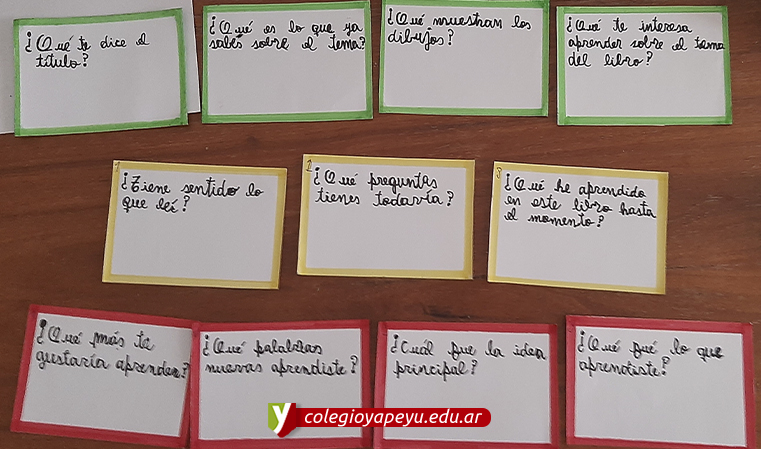 ¿Qué te dice el
título?
¿Qué es lo que ya
sabés sobre el tema?
¿Qué muestran los
dibujos?
¿Qué te interesa
aprender sobre el tema
del libro?
1
¿Tiene sentido lo
que leí?
2
¿Qué preguntas
tienes todavía?
3
¿Qué he aprendido
en este libro hasta
el momento?
¿Qué más te
gustaría aprender?
¿Qué palabras
nuevas aprendiste?
¿Cuál fue la idea
principal?
¿Qué fué lo que
aprendiste?
y colegioyapeyu.edu.ar